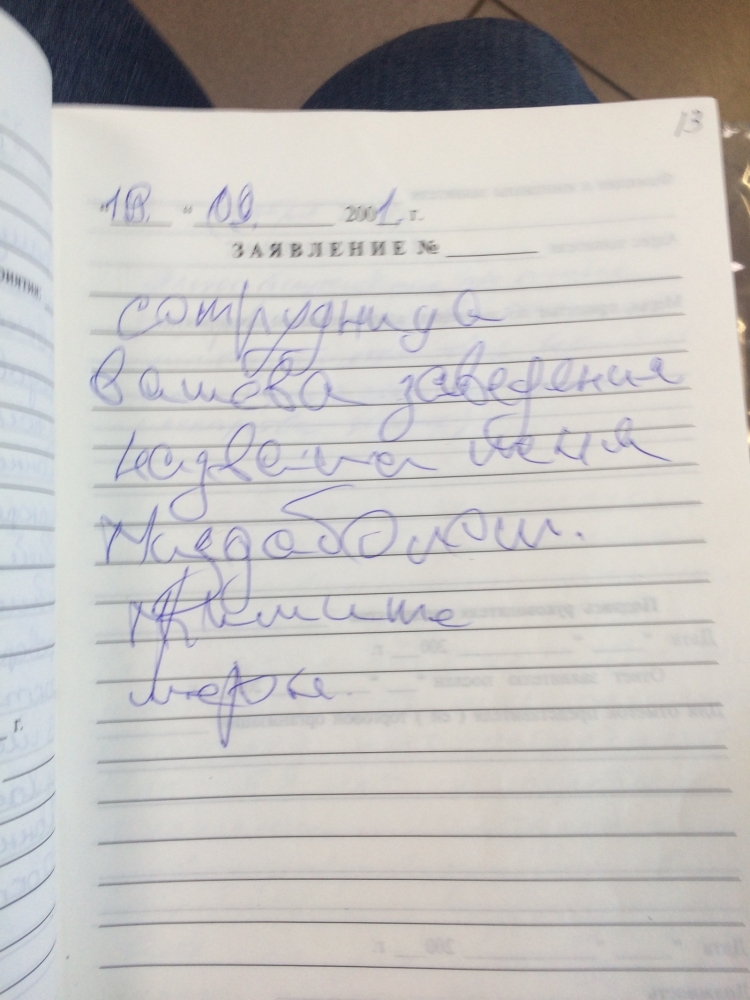 13
"18." 09. 2001 г.
ЗАЯВЛЕНИЕ №
сотрудница
вашева заведения
назвала меня
Мандаболом.
Примите
меры.
г.